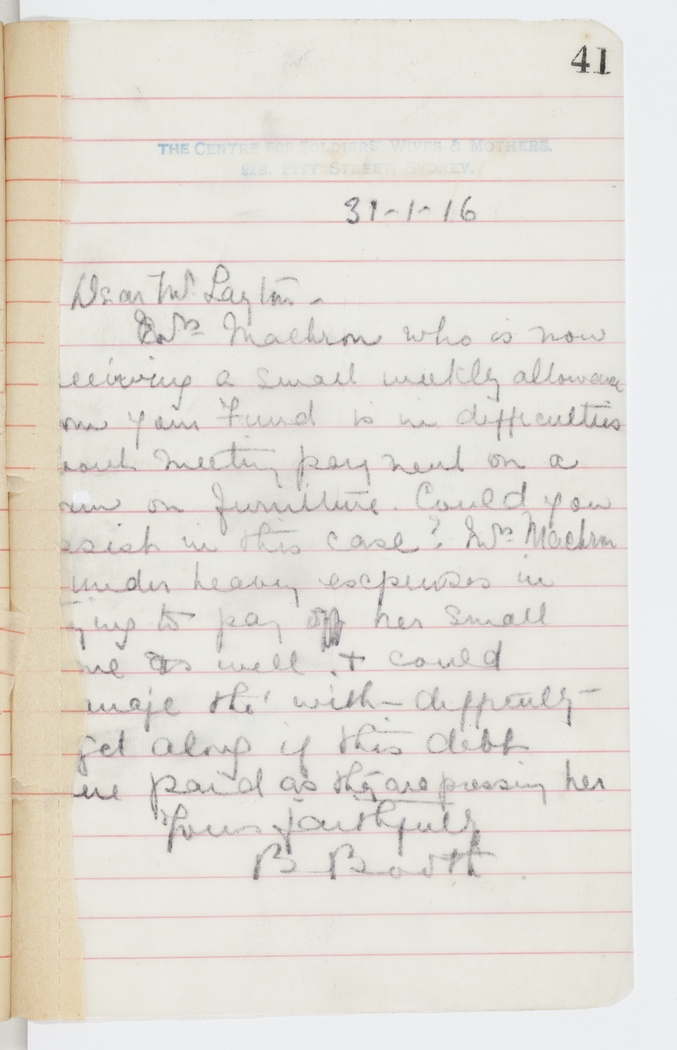 41
THE CENTRE FOR SOLDIERS' WIVES & MOTHERS.
PITT STREET, SYDNEY.
31-1-16
Dear Mr Layton -
Mrs Machron who is now
eceiving a small weekly allowance
om your Fund is in difficulties
bout meeting payment on a
on furniture. Could you
ssist in this case? Mrs Machron
under heavy expenses in
ying to pay off her small
me as well & could
anage tho' with difficulty -
get along if this debt
ere paid as they are pressing her
Yours faithfully
B Booth.